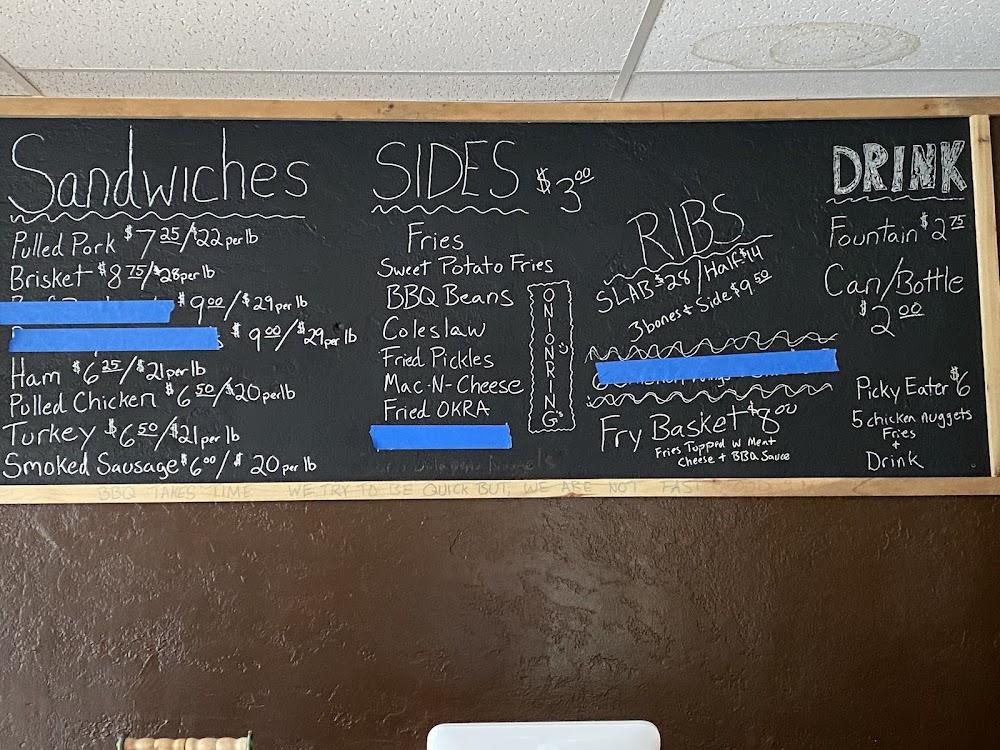 Sandwiches
Pulled Pork $7.25/$22 per lb
Brisket $8.75/$28 per lb
$9.00/$29 per lb
$9.00/$29 per lb
Ham $6.25/$21 per lb
Pulled Chicken $6.50/$20 per lb
Turkey $6.50/$21 per lb
Smoked Sausage $6.00/$20 per lb
SIDES $3.00
Fries
Sweet Potato Fries
BBQ Beans
Coleslaw
Fried Pickles
Mac-N-Cheese
Fried OKRA
ONION RING's
RIBS
SLAB $28/Half $14
3 bones + Side $9.50
Fry Basket $8.00
Fries Topped w Meat
Cheese + BBQ Sauce
DRINK
Fountain $2.75
Can/Bottle
$2.00
Picky Eater $6
5 chicken nuggets
Fries
+
Drink
BBQ TAKES TIME WE TRY TO BE QUICK BUT, WE ARE NOT FAST